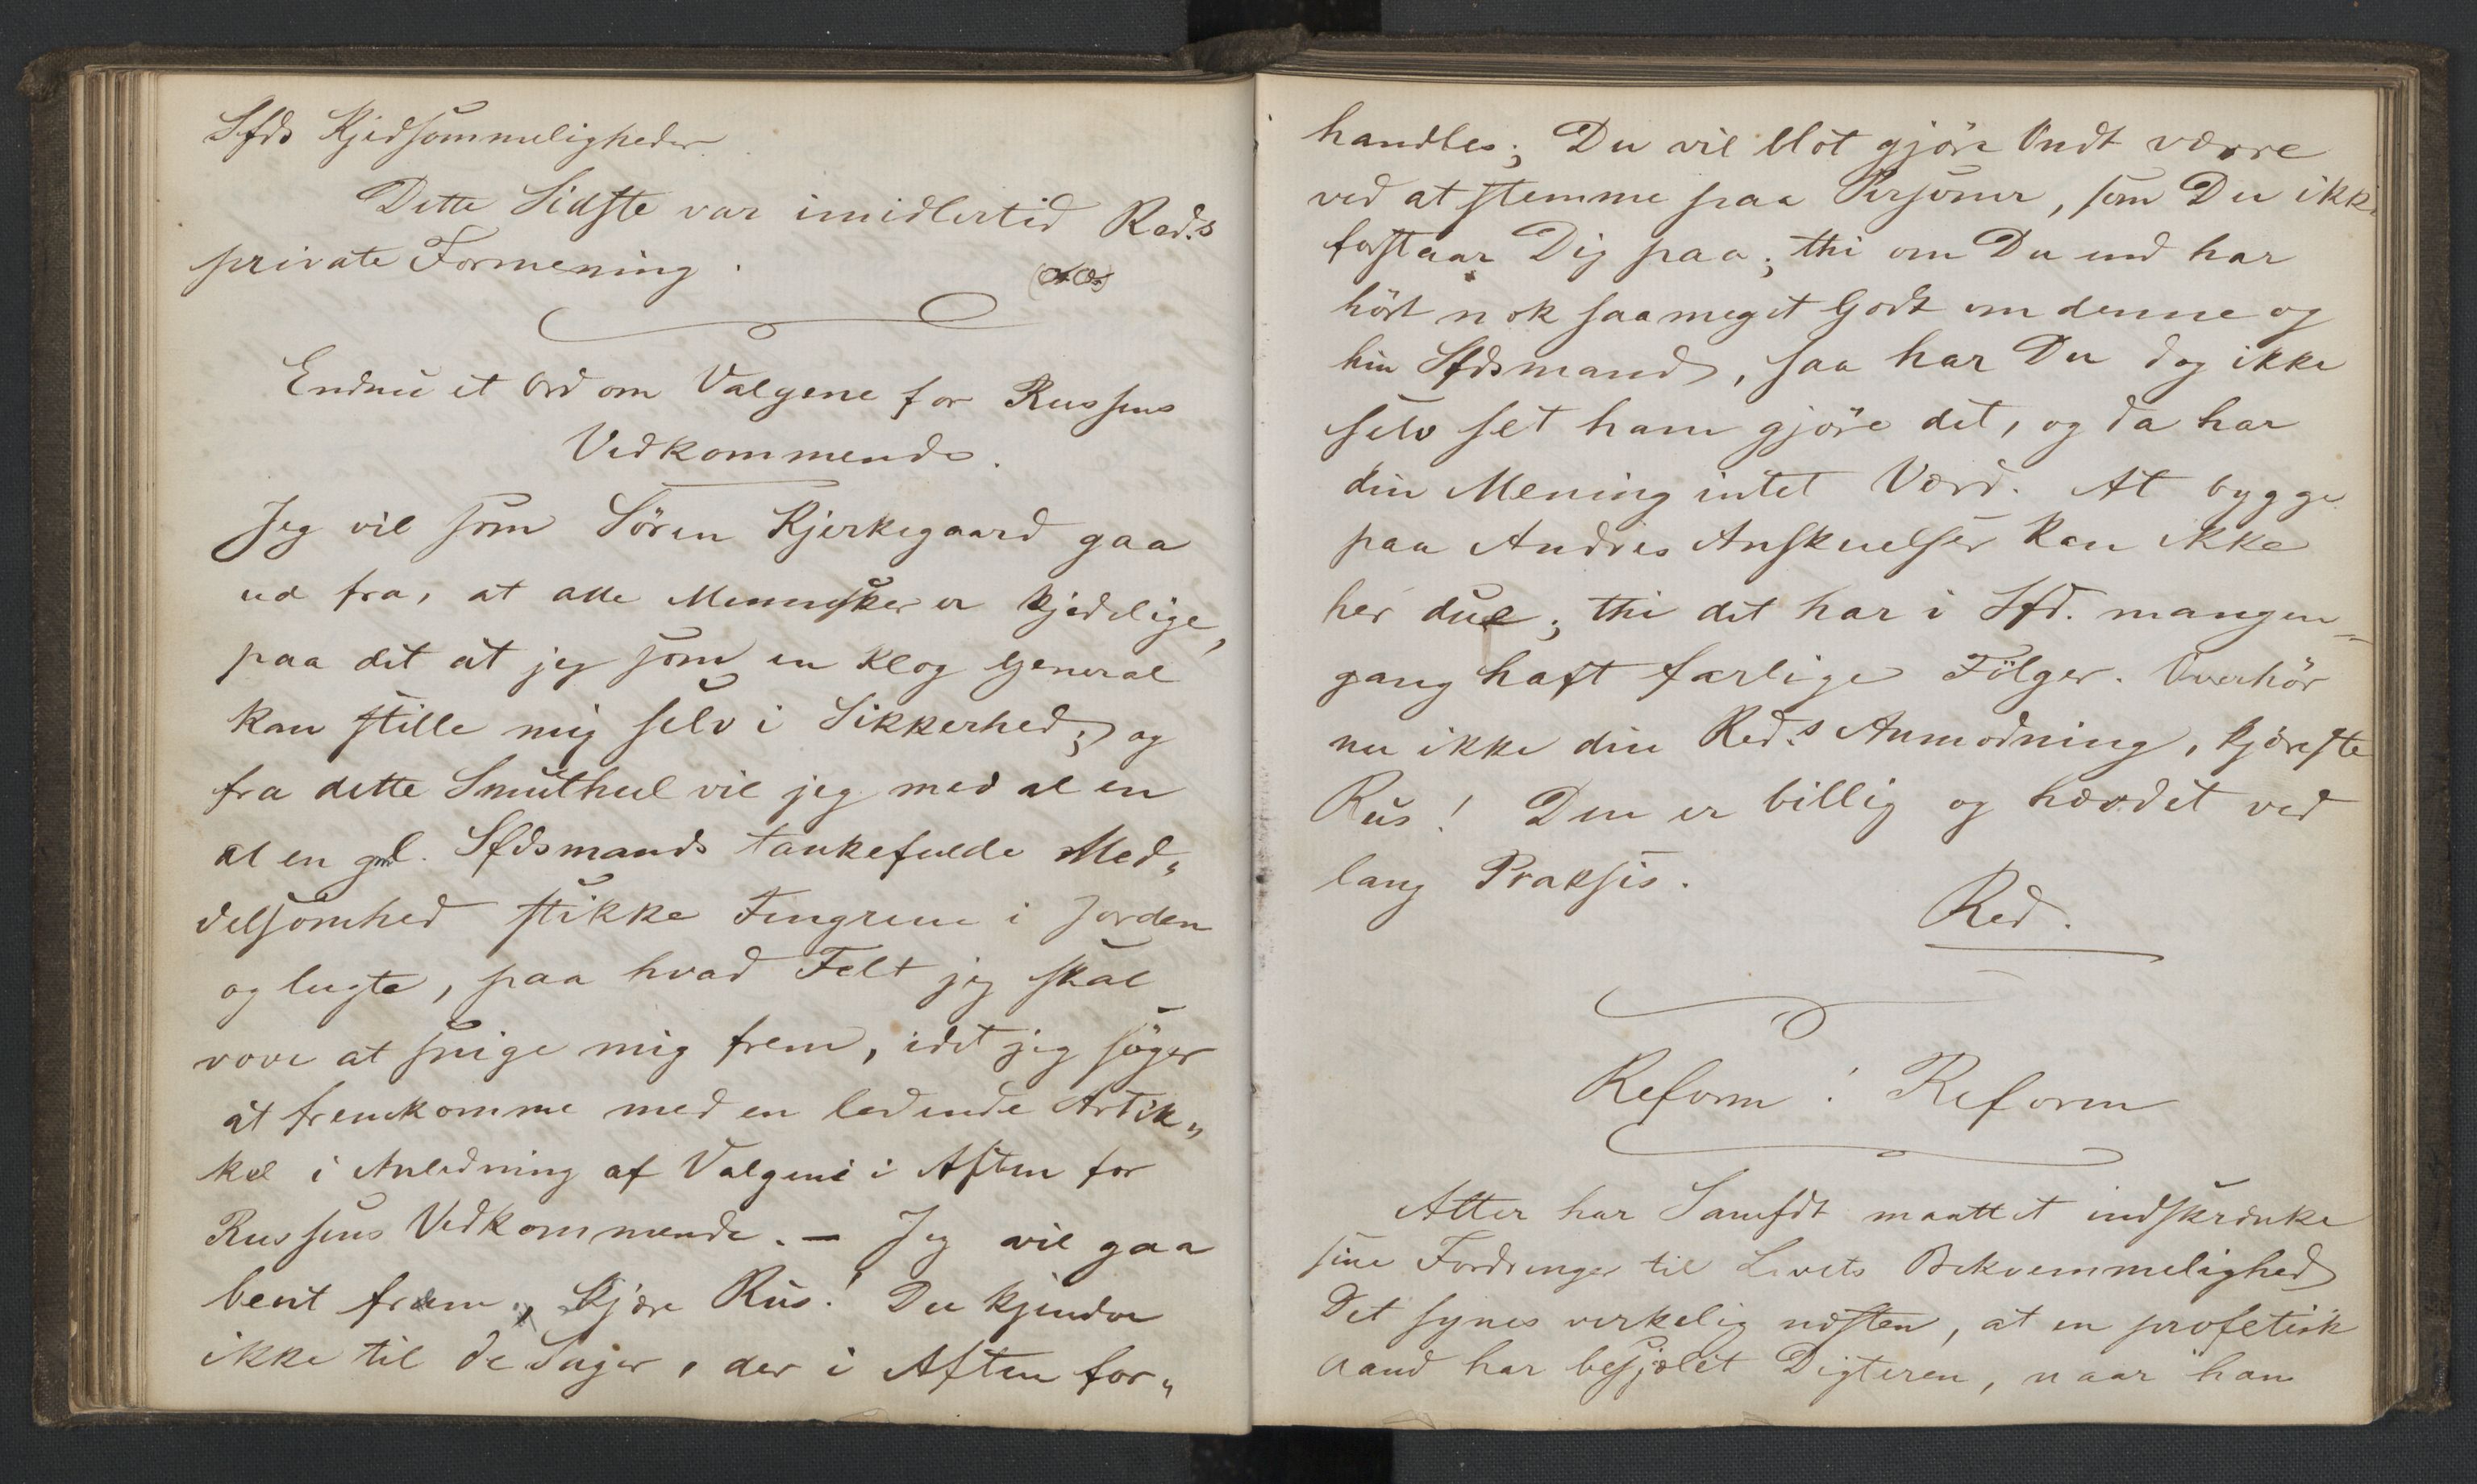 Sfds Kjedsommeligheder.
Dette Sidste var imidlertid Red.s
private Formening.
Endnu et Ord om Valgene for Russens
Vedkommende.
Jeg vil som Sören Kjerkegaard gaa
ud fra, at alle Mennesker er kjedelige,
paa det at jeg som en klog General
kan stille mig selv i Sikkerhed; og
fra dette Smuthul vil jeg med al en
al en gml. Sfdsmands tankefulde Med„
delsomhed stikke Fingrene i Jorden
og lugte, paa hvad Felt jeg skal
vove at snige mig frem, idet jeg söger
at fremkomme med en ledende Artik„
kel i Anledning af Valgene i Aften for
Russens Vedkommende. — Jeg vil gaa
bent frem, kjære Rus! Du kjender
ikke til de Sager, der i Aften for„
handles; Du vil blot gjöre Ondt værre
ved at stemme paa Personer, som Du ikke
forstaar Dig paa; thi om Du end har
hört nok saa meget Godt om denne og
hin Sfdsmand, saa har Du dog ikke
selv set ham gjöre det, og da har
din Mening intet Værd. At bygge
paa Andres Anskuelser kan ikke
her due; thi det har i Sfd. mangen=
gang haft farlige Fölger. Overhör
nu ikke din Red.s Anmodning, kjæreste
Rus! Den er billig og hævdet ved
lang Praksis.
Red.
Reform! Reform
Atter har Samfdt maattet indskrænke
sine Fordringer til Livets Bekvemmelighed
Det synes virkelig næsten, at en profetisk
Aand har besjælet Digteren, naar han